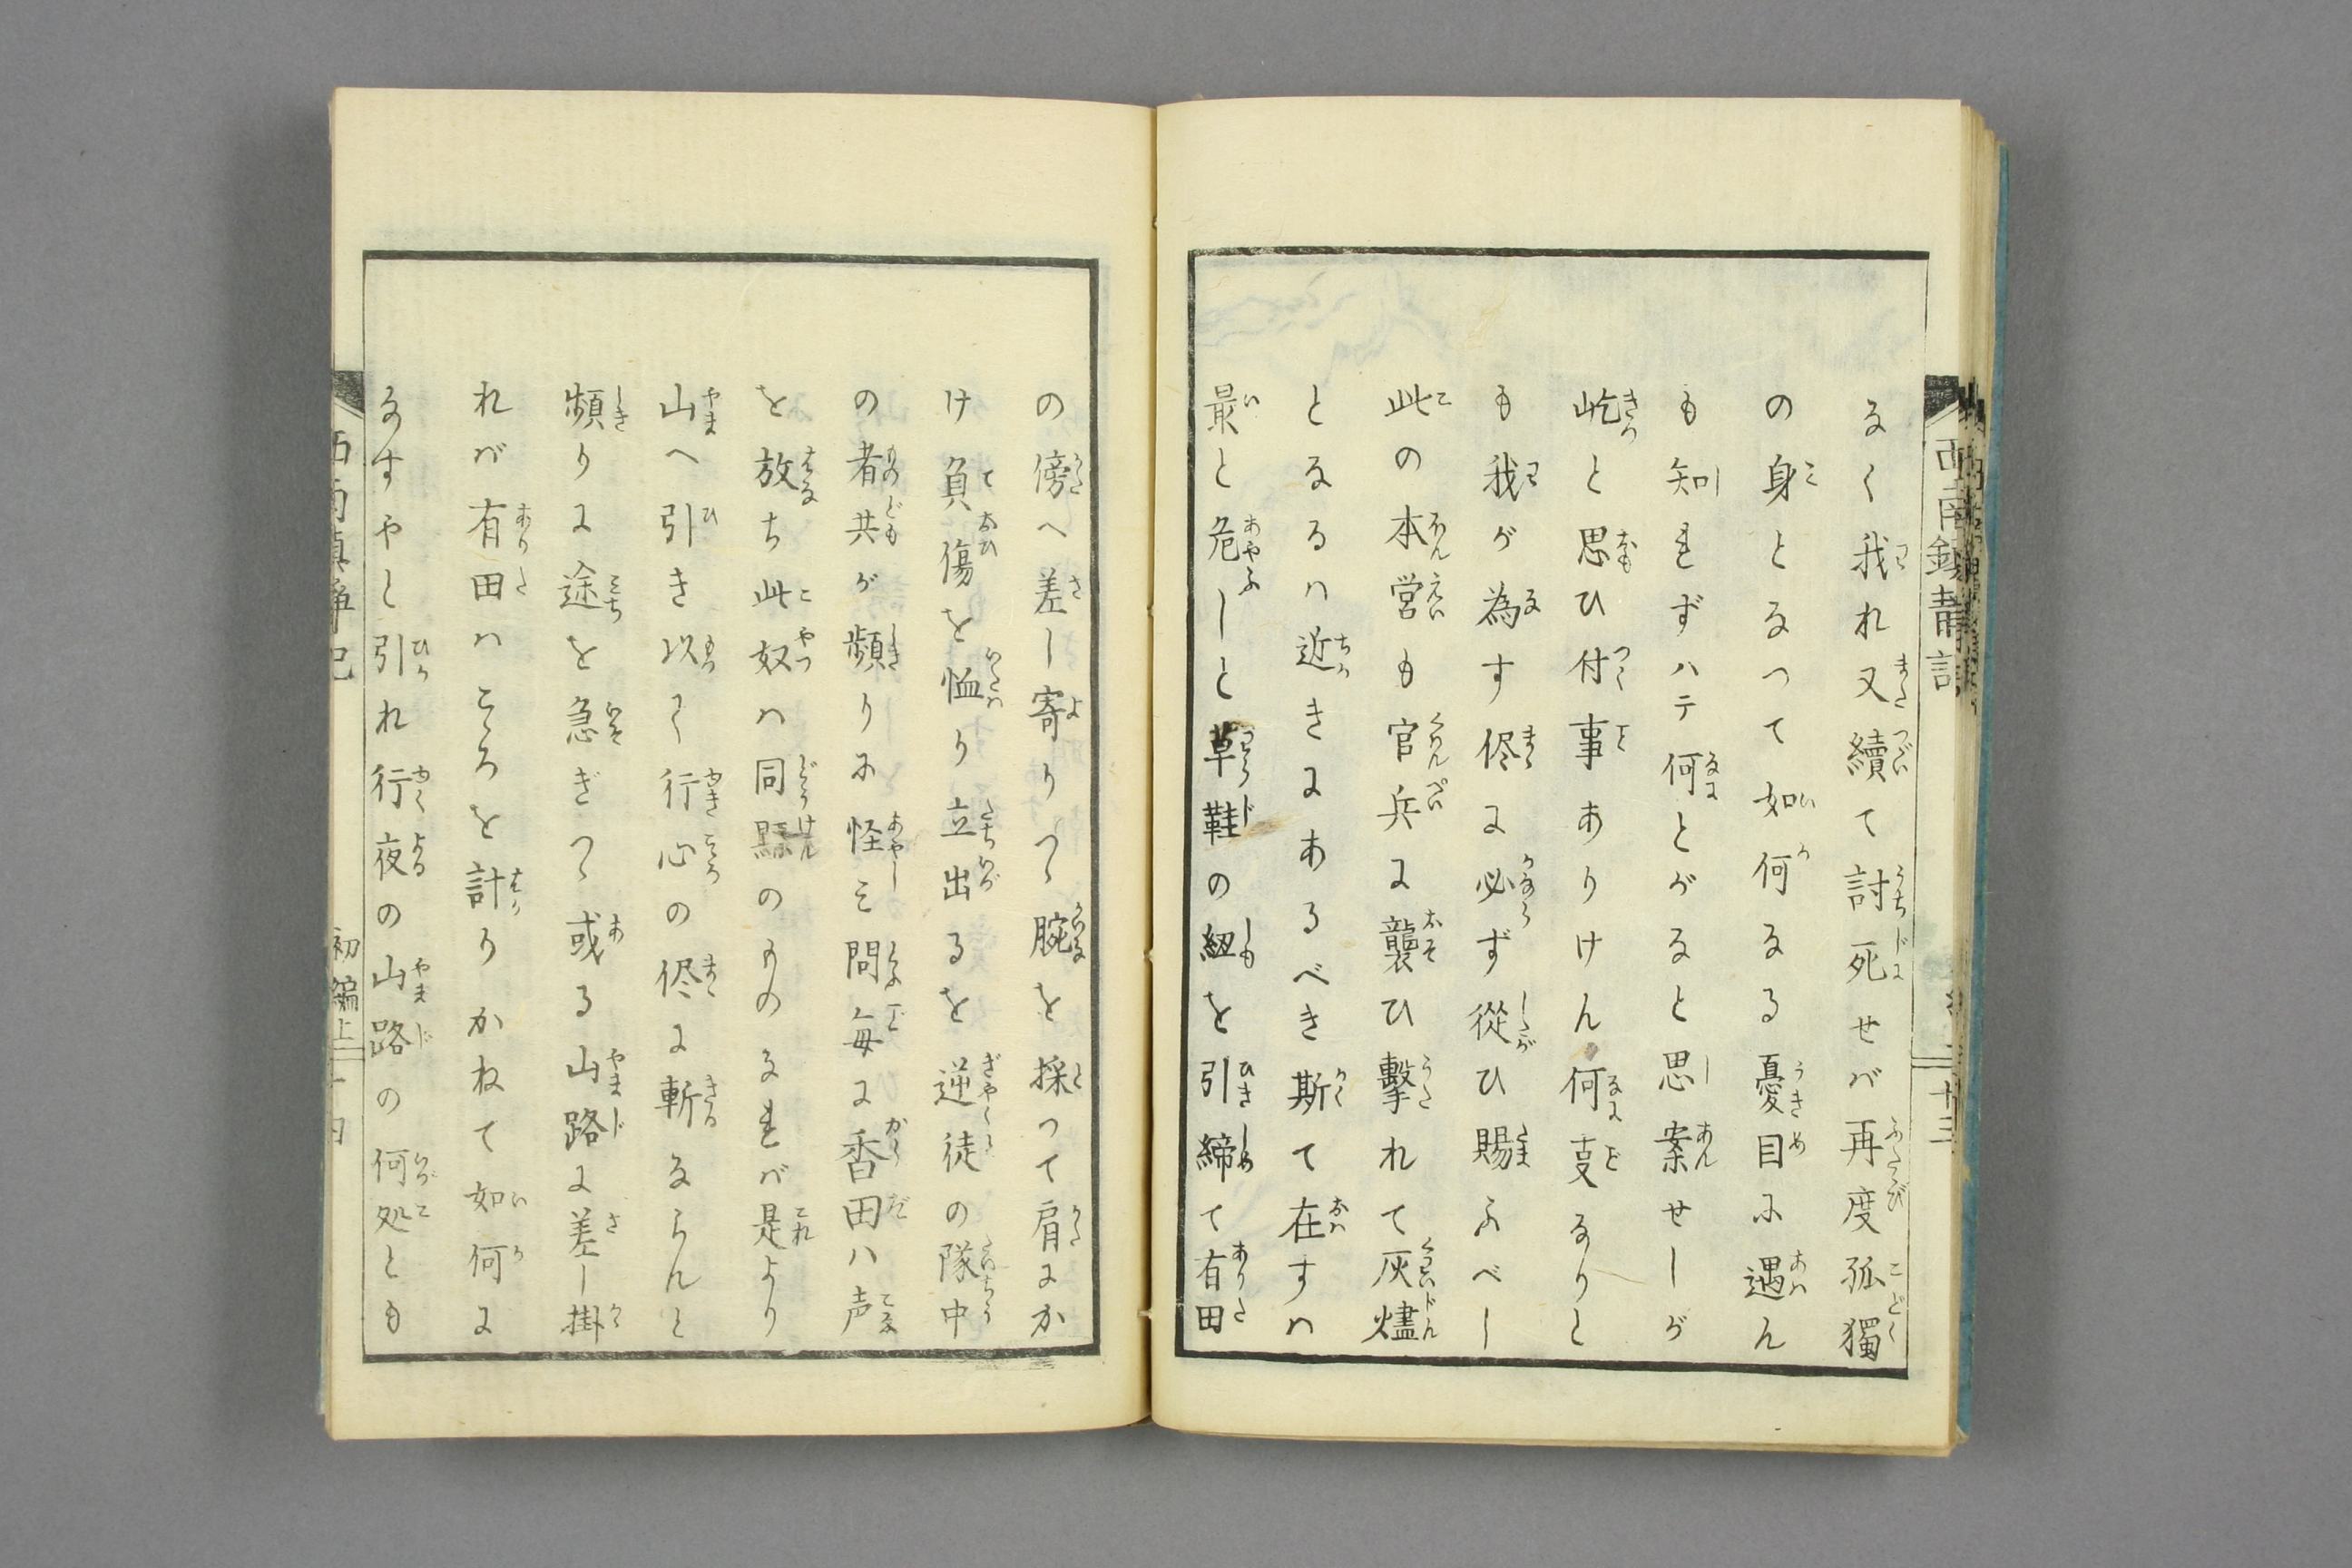 なく我れ又續て討死せバ再度孤獨
の身となつて如何なる憂目に遇ん
も知れずハテ何とがなと思案せしが
屹と思ひ付事ありけん何事なりと
も我が為す侭に必ず從ひ賜ふべし
此の本営も官兵に襲ひ擊れて灰燼
となるハ近きにあるべき斯て在すハ
最と危しと草鞋の紐を引締て有田
の傍へ差し寄りつゝ腕を採つて肩にか
け負傷を恤り立出るを逆徒の隊中
の者共が頻りに怪ミ問毎に香田ハ声
を放ち此奴ハ同縣のものなれバ是より
山へ引き以て行心の侭に斬ならんと
頻りに途を急ぎつゝ或る山路に差し掛
れバ有田ハこゝろを計りかねて如何に
なすやと引れ行夜の山路の何処とも
初編上
十三